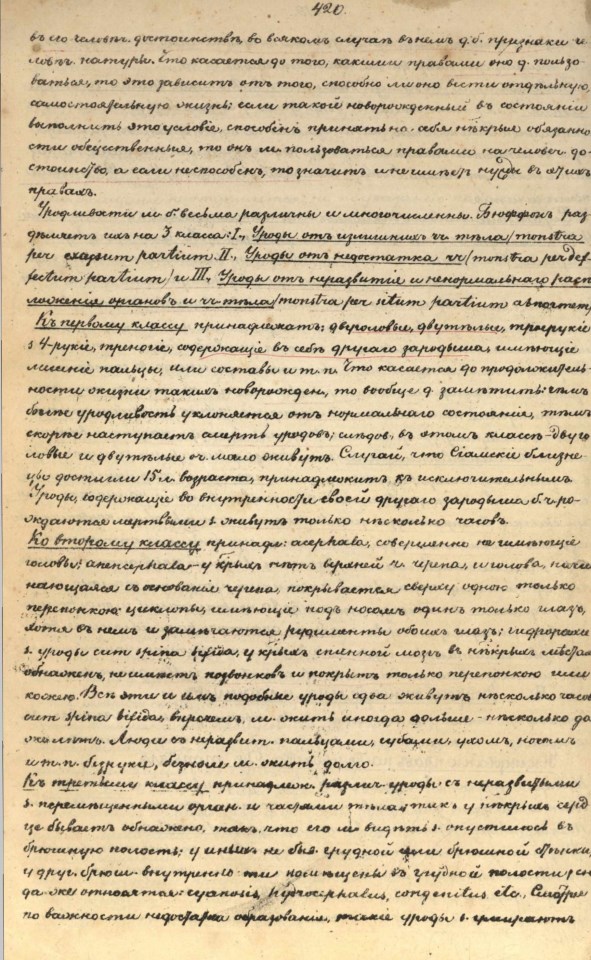 420.
въ его человѣч. достоинствѣ, во всякомъ случаѣ въ немъ д. б. признаки че-
ловѣч. натуры. Что касается до того, какими правами оно д. пользо-
ваться, то это зависитъ отъ того, способно ли оно вести отдѣльную,
самостоятельную жизнь; если такой новорожденный въ состояніи
выполнить это условіе, способенъ принять на себя нѣкрые обязанно-
сти общественныя, то онъ м. пользоваться правами на человѣч. до-
стоинство, а если неспособенъ, то значитъ и не имѣетъ нужды въ этихъ
правахъ.
Уродливости м. б. весьма различны и многочисленны. Бюффонъ раз-
дѣляетъ ихъ на 3 класса: I., Уроды отъ излишнихъ чч. тѣла /monstra
per excessum partium. II., Уроды отъ недостатка чч /monstra per def-
fectum partium/ и III., Уроды отъ неразвитія и ненормальнаго распо-
ложенія органовъ и чч. тѣла /monstra per situm partium
Къ первому классу принадлежатъ: двуголовые, двутѣлые, трирукіе
s. 4-рукіе, треногіе, содержащіе въ себѣ другаго зародыша, имѣющіе
лишніе пальцы, или составы и т. п. Что касается до продолжитель-
ности жизни такихъ новорожден., то вообще д. замѣтить: чѣмъ
болѣе уродливость уклоняется отъ нормальнаго состоянія, тѣмъ
скорѣе наступаетъ смерть уродовъ; слѣдов. въ этомъ классѣ двуго-
ловые и двутѣлые оч. мало живутъ. Случай, что Сіамскіе близне-
цы достигли 15 л. возраста, принадлежитъ къ исключительнымъ.
Уроды, содержащіе во внутренности своей другаго зародыша б. ч. ро-
ждаются мертвыми s. живутъ только нѣсколько часовъ.
Ко второму классу принадл: acephala, совершенно не имѣющіе
головы; anencephala – у крыхъ нѣтъ верхней ч. черепа, и голова, начи-
нающаяся съ основанія черепа, покрывается сверху одною только
перепонкою; циклопы, имѣющіе подъ носомъ одинъ только глазъ,
хотя въ немъ и замѣчаются рудименты обоихъ глазъ;
s. уроды cum spina bifida, у крыхъ спинной мозгъ въ нѣкрыхъ мѣстахъ
обнаженъ, не имѣетъ позвонковъ и покрытъ только перепонкою или
кожею. Всѣ эти и имъ подобные уроды едва живутъ нѣсколько часовъ
cum spina bifida, впрочемъ, м. жить иногда дольше – нѣсколько
Люди съ неразвит. пальцами, губами, ухомъ, носомъ
и т. п. безрукіе, безногіе м. жить долго.
Къ третьему классу принадлеж. различ. уроды съ неразвитыми
s. перемѣщенными орган. и частями тѣла, такъ у нѣкрыхъ серд-
це бываетъ обнажено, такъ, что его м. видѣть s. опустилось въ
брюшную полость; у иныхъ не быв. грудной или брюшной стѣнки,
у друг. брюш. внутренности помѣщены въ грудной полости; сю-
да же относятся: cyanosis, hydrocephalus, congenitus etc. Смотря
по важности недостатка образованія, такіе уроды s. умираютъ